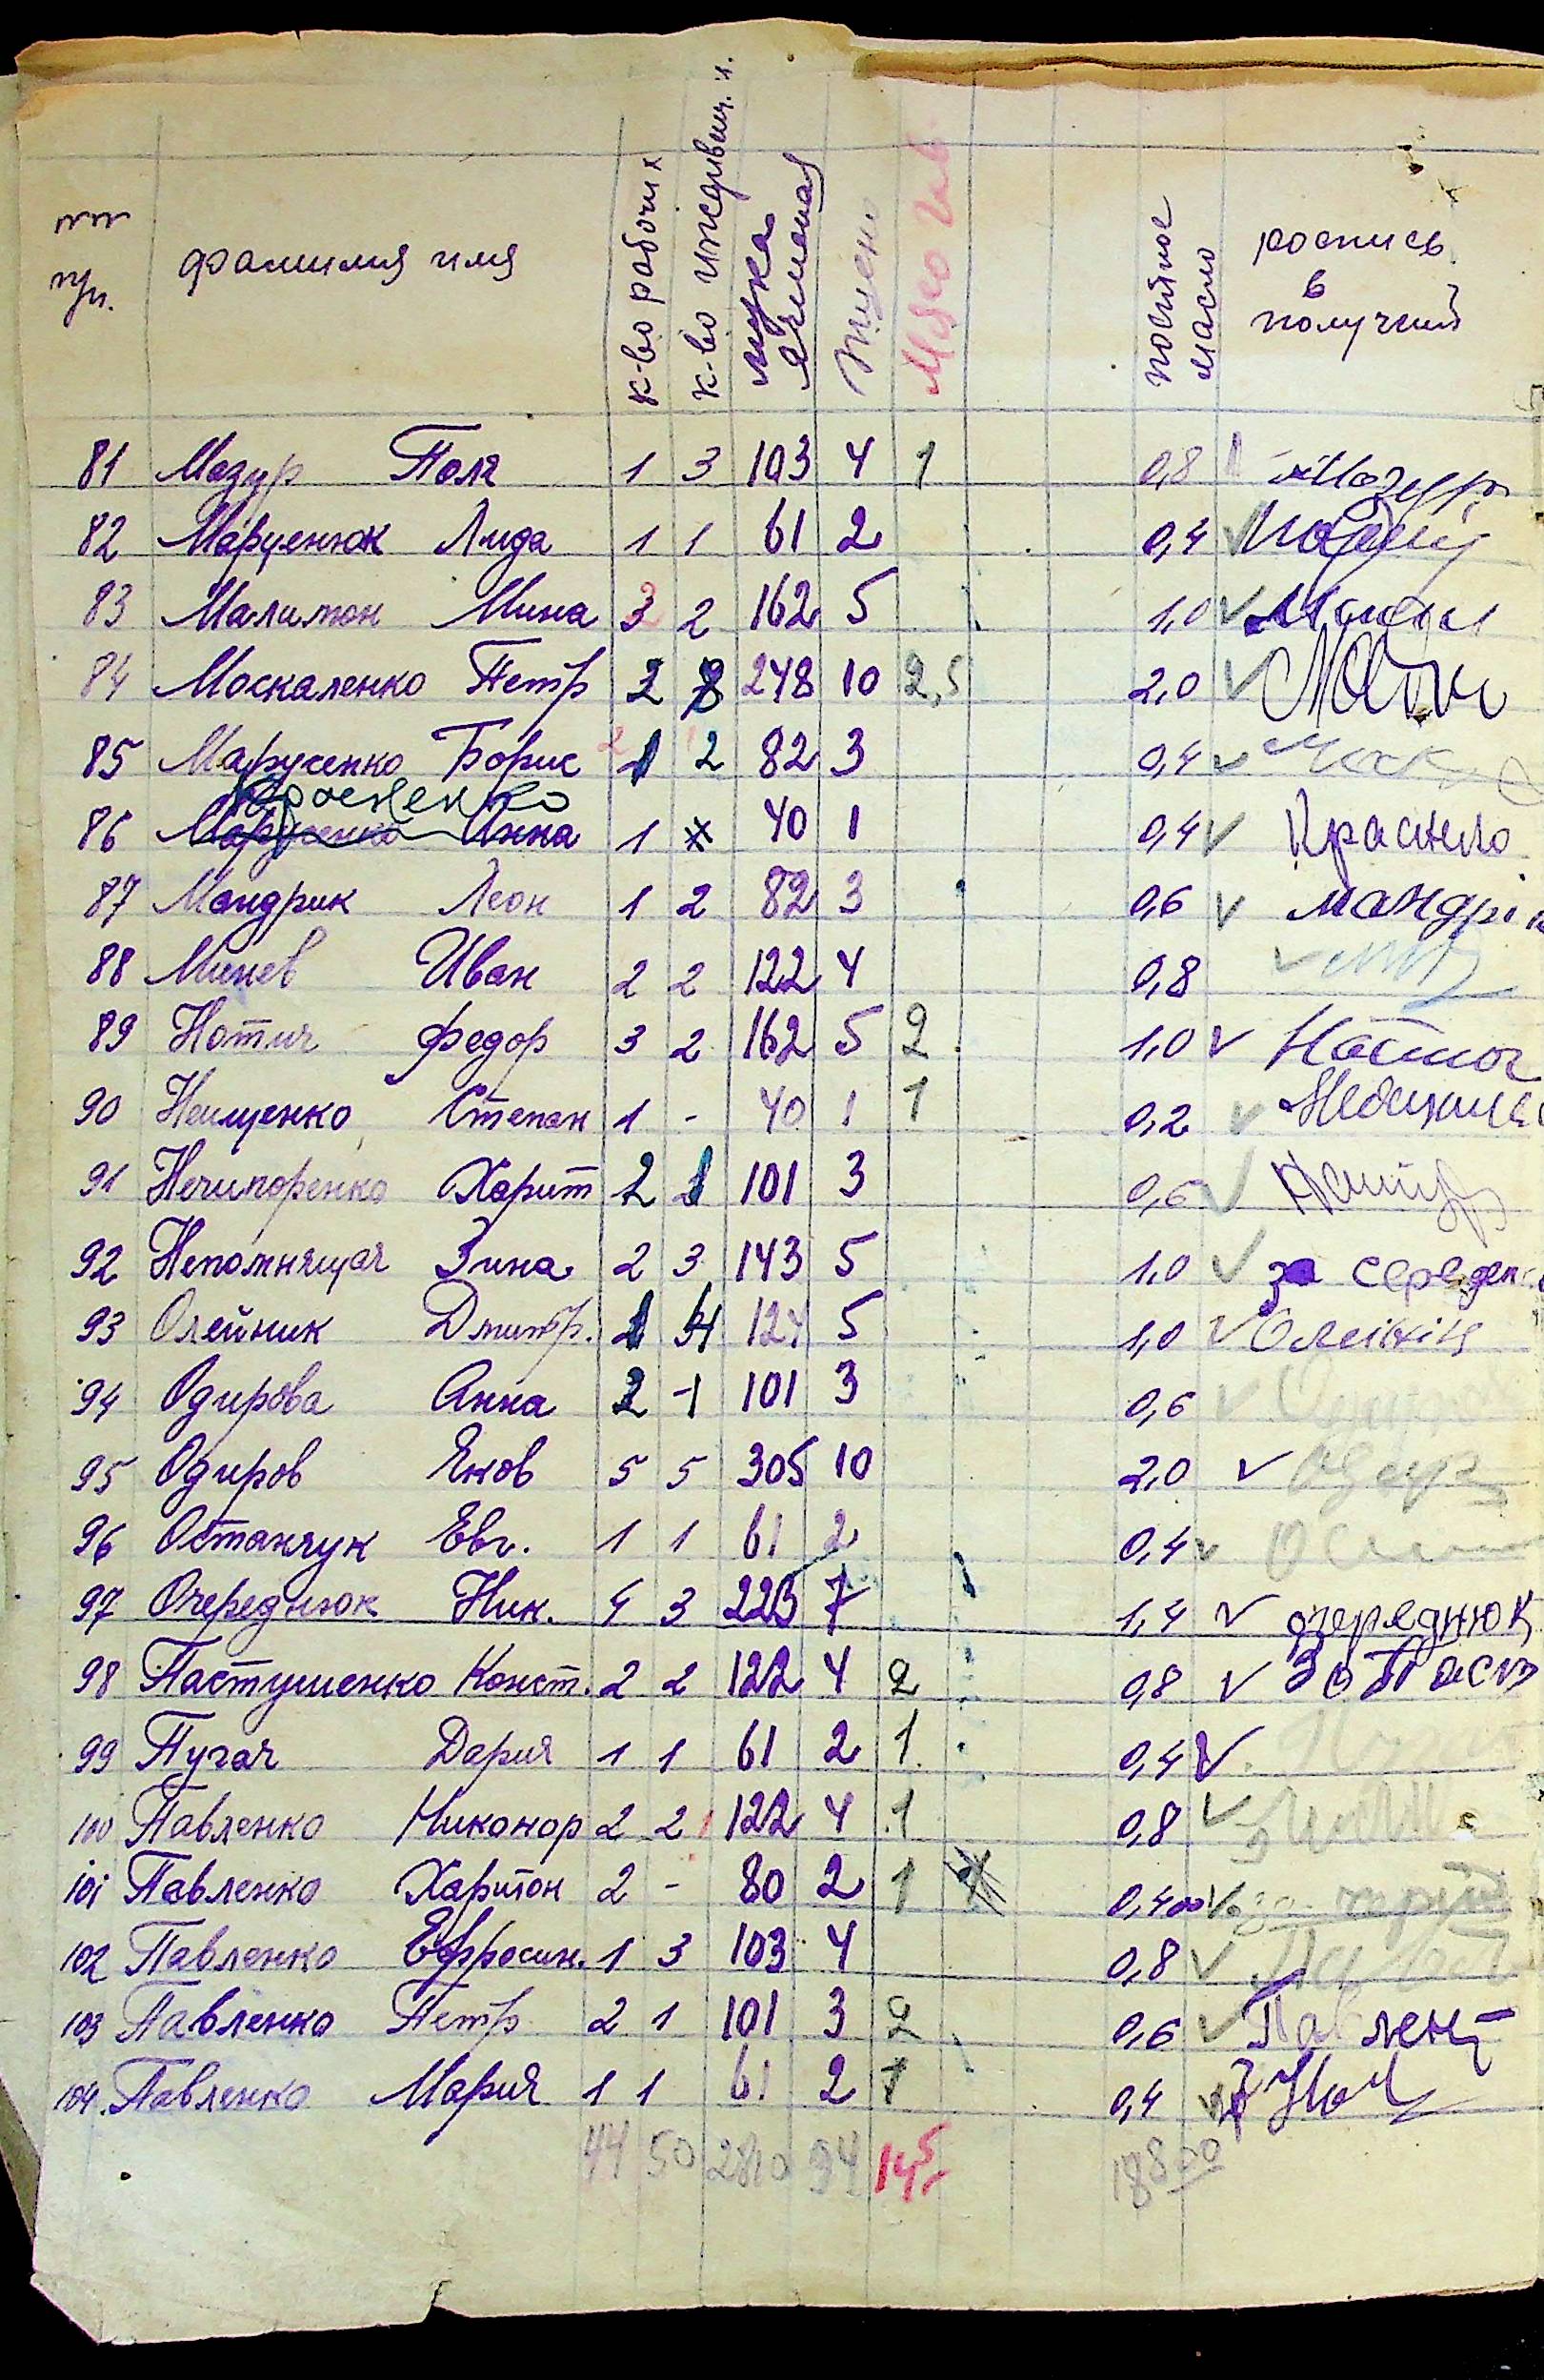 пп
пп.
фамилия имя
к-во рабочих
к-во иждивен. и.
мука ячменая
пшено
Мясо
постное масло
роспись
в
получении
81 Мазур Поля 1 3 103 4 1 0,8 Мазур
82 Маруенюк Лида 1 1 61 2 0,4 V
83 Малимон Мина 3 2 162 5 1,0 V
84 Москаленко Петр 2 8 248 10 2,5 2,0 V
85 Марусенко Борис 1 2 82 3 0,4 V
86 Марусенко Инна 1 40 1 0,4 V
87 Мандрик Леон 1 2 82 3 0,6 V мандрі
88 Минев Иван 2 2 122 4 0,8 V
89 Нотич Федор 3 2 162 5 2 1,0 V
90 Неищенко Степан 1 - 40 1 1 0,2 V
91 Нечипоренко Харит 2 1 101 3 0,6 V
92 Непомнящая Зина 2 3 143 5 1,0 V за
93 Олейник Дмитр. 1 4 124 5 1,0 V
94 Одирова Анна 2 1 101 3 0,6 V
95 Одиров Яков 5 5 305 10 2,0 V
96 Остапчук Евг. 1 1 61 2 0,4 V
97 Очереднюк Ник. 4 3 223 7 1,4 V очереднюк
98 Пастушенко Конст. 2 2 122 4 2 0,8 V
99 Пугач Дария 1 1 61 2 1 0,4 V
100 Павленко Никонор 2 2 122 4 1 0,8 V
101 Павленко Харитон 2 - 80 2 1 0,400 V
102 Павленко Ефросин. 1 3 103 4 0,8 V
103 Павленко Петр 2 1 101 3 2 0,6 V
104. Павленко Мария 1 1 61 2 1 0,4 V
44 50 2810 94 14,5 18800